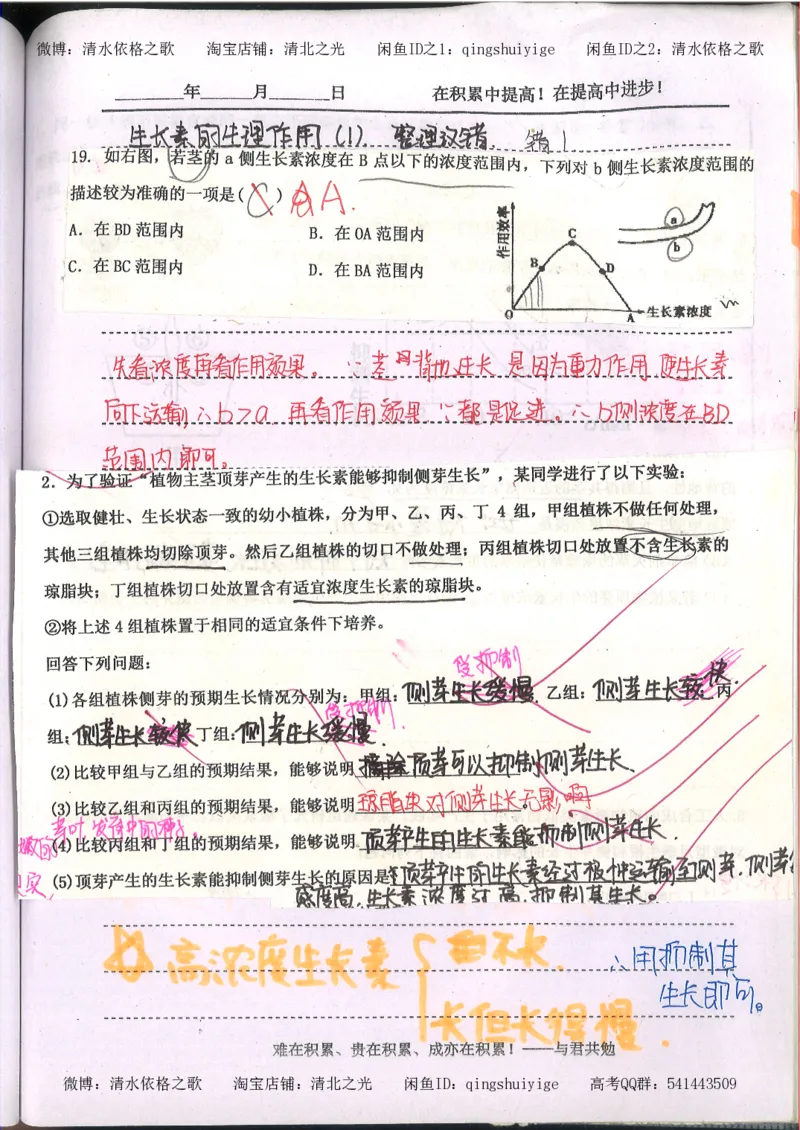 微博：清水依格之歌 淘宝店铺：清北之光 闲鱼ID之1：qingshuiyige 闲鱼ID之2：清水依格之歌
年 月 日 在积累中提高！在提高中进步！
生长素的生理作用(1). 整理汉错. 错1
19. 如右图，若茎的 a 侧生长素浓度在 B 点以下的浓度范围内，下列对 b 侧生长素浓度范围的
描述较为准确的一项是( ) A.
A. 在 BD 范围内 B. 在 OA 范围内
C. 在 BC 范围内 D. 在 BA 范围内
作用效率
a
b
C
B
D
O
A
生长素浓度
先看浓度再看作用效果。∵茎的背地生长 是因为重力作用 使生长素
向下运输,∴b>a 再看作用效果 ∵都是促进 ∴b侧浓度在BD
范围内即可。
2. 为了验证“植物主茎顶芽产生的生长素能够抑制侧芽生长”，某同学进行了以下实验：
①选取健壮、生长状态一致的幼小植株，分为甲、乙、丙、丁 4 组，甲组植株不做任何处理，
其他三组植株均切除顶芽。然后乙组植株的切口不做处理；丙组植株切口处放置不含生长素的
琼脂块；丁组植株切口处放置含有适宜浓度生长素的琼脂块。
②将上述 4 组植株置于相同的适宜条件下培养。
回答下列问题：
受抑制
(1)各组植株侧芽的预期生长情况分别为：甲组：侧芽生长缓慢 乙组：侧芽生长较快 丙
受抑制
组：侧芽生长较快 丁组：侧芽生长缓慢.
(2)比较甲组与乙组的预期结果，能够说明 顶芽可以抑制侧芽生长、
(3)比较乙组和丙组的预期结果，能够说明琼脂块对侧芽生长无影响
(4)比较丙组和丁组的预期结果，能够说明 顶芽产生的生长素能抑制侧芽生长.
(5)顶芽产生的生长素能抑制侧芽生长的原因是 顶芽产生的生长素经过极性运输至侧芽，侧芽
感度高，生长素浓度过高，抑制其生长。
高浓度生长素 不长.
长但长得慢.
∴用抑制其
生长即可。
难在积累、贵在积累、成亦在积累！——与君共勉
微博：清水依格之歌 淘宝店铺：清北之光 闲鱼ID：qingshuiyige 高考QQ群：541443509